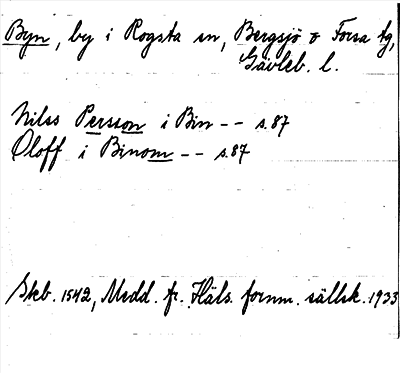 Byn, by i Rogsta sn, Bergsjö o Forsa tg,
Gävleb. l.
Nilss Persson i Bin -- s. 87
Oloff i Binom -- s. 87
Skb. 1542, Medd. fr. Häls. fornm. sällsk. 1933